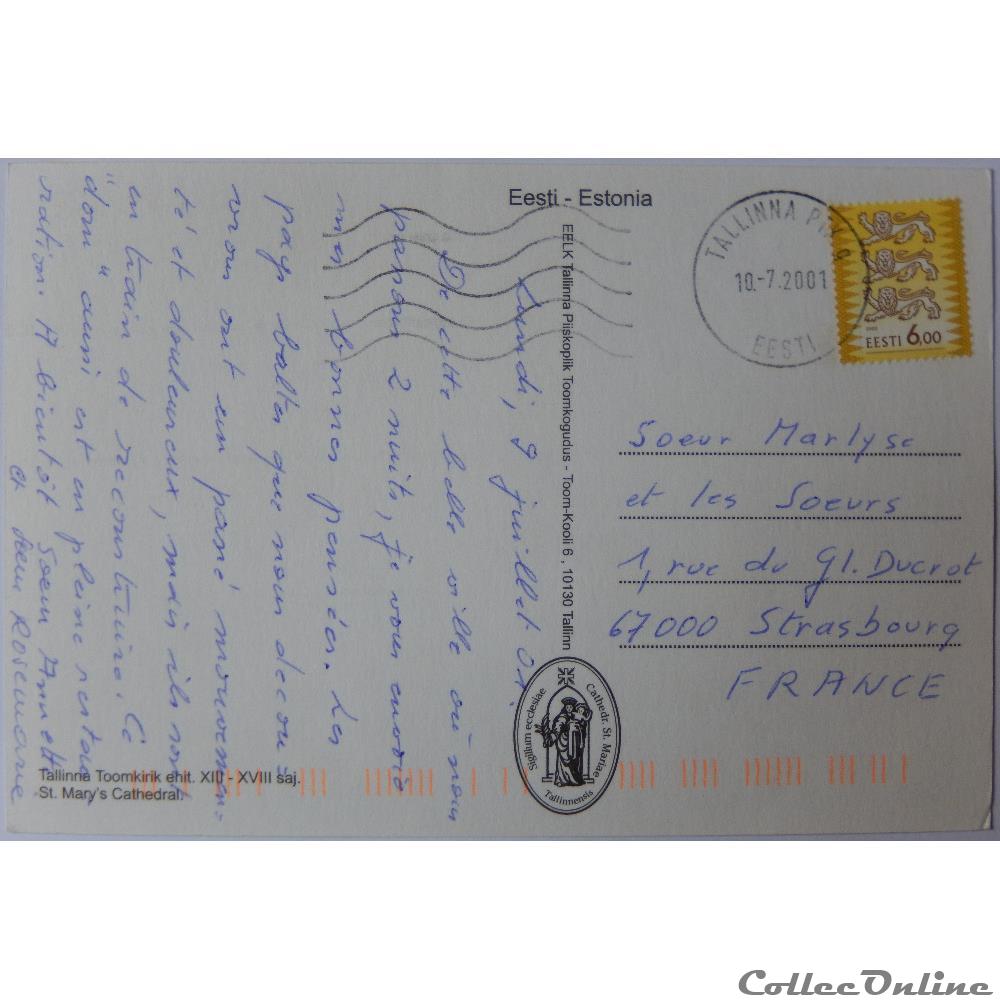 Eesti - Estonia
EELK Tallinna Piiskoplik Toomkogudus - Toom-Kooli 6 , 10130 Tallinn
TALLINNA
10.-7.2001
EESTI
EESTI 6,00
Lundi, 9 juillet 01.
De cette belle ville où nous
passons 2 nuits, je vous envoie
mes bonnes pensées. Les
pays baltes que nous décou=
vrons ont un passé mouvemen-
té et douloureux, mais ils sont
en train de reconstruire. Le
"dom" aussi est en pleine restau
ration. A bientôt Soeur Annette
et Soeur Rosemarie
Soeur Marlyse
et les Soeurs
1, rue du Gl. Ducrot
67000 Strasbourg
FRANCE
Sigilium ecclesiae Cathedr. St. Mariae
Tallinnensis
Tallinna Toomkirik ehit. XIII - XVIII saj.
St. Mary's Cathedral.
CollecOnline